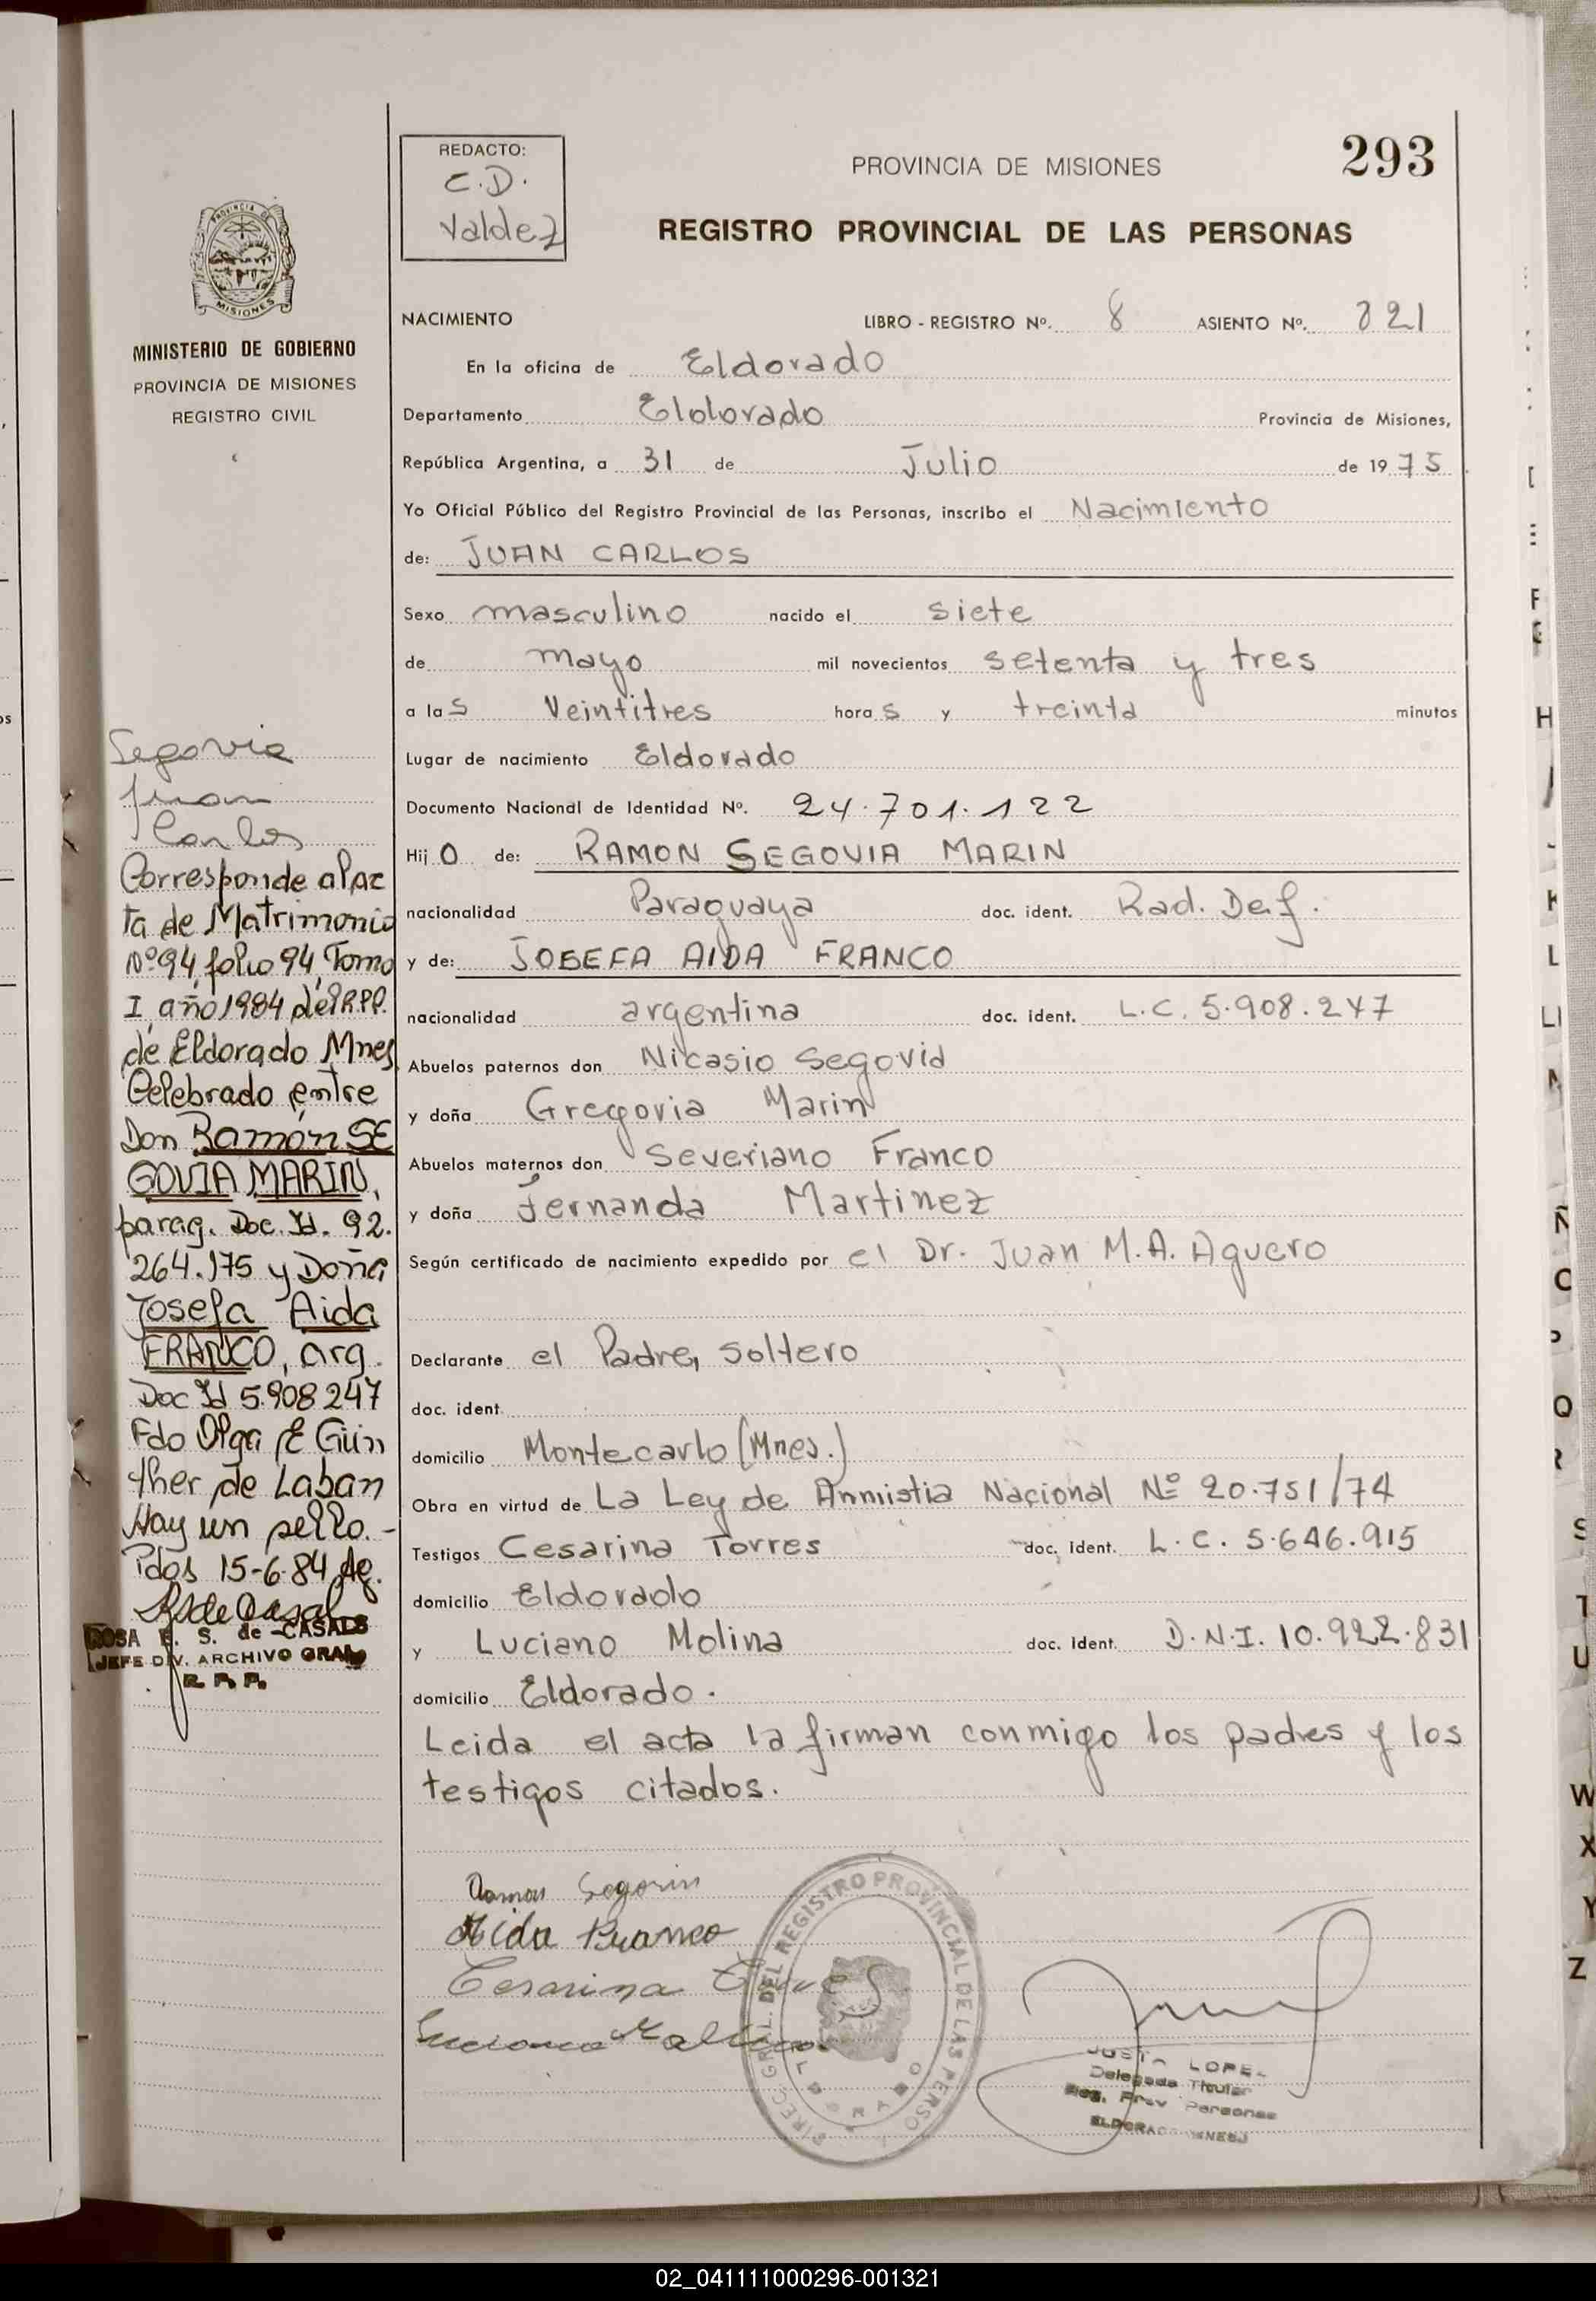 293
REDACTO:
C.D.
Valdez
PROVINCIA DE MISIONES
REGISTRO PROVINCIAL DE LAS PERSONAS
PROVINCIA DE
MISIONES
MINISTERIO DE GOBIERNO
PROVINCIA DE MISIONES
REGISTRO CIVIL
NACIMIENTO LIBRO - REGISTRO Nº. 8 ASIENTO Nº. 821
En la oficina de Eldorado
Departamento Eldorado Provincia de Misiones,
República Argentina, a 31 de Julio de 1975
Yo Oficial Público del Registro Provincial de las Personas, inscribo el Nacimiento
de: JUAN CARLOS
Sexo masculino nacido el siete
de mayo mil novecientos setenta y tres
a las Veintitres horas y treinta minutos
Lugar de nacimiento Eldorado
Documento Nacional de Identidad Nº. 24.701.122
Hijo de: RAMON SEGOVIA MARIN
nacionalidad Paraguaya doc. ident. Rad. Def.
y de: JOSEFA AIDA FRANCO
nacionalidad argentina doc. ident. L.C. 5.908.247
Abuelos paternos don Nicasio Segovia
y doña Gregoria Marin
Abuelos maternos don Severiano Franco
y doña Fernanda Martinez
Según certificado de nacimiento expedido por el Dr. Juan M.A. Aguero
Declarante el Padre, soltero
doc. ident.
domicilio Montecarlo (Mnes.)
Obra en virtud de La Ley de Amnistia Nacional Nº 20.751/74
Testigos Cesarina Torres doc. ident. L.C. 5.646.915
domicilio Eldorado
y Luciano Molina doc. ident. D.N.I. 10.922.831
domicilio Eldorado.
Leida el acta la firman conmigo los padres y los
testigos citados.
Segovia
Juan
Carlos
Corresponde al ac
ta de Matrimonio
Nº 94 folio 94 Tomo
I, año 1984 del R.P.P.
de Eldorado Mnes
Celebrado entre
Don Ramón SE
GOVIA MARIN,
parag. Doc. Id. 92.
264.175 y Doña
Josefa Aida
FRANCO, arg.
Doc Id 5.908247
Fdo Olga E Gün
ther de Laban
Hay un sello.-
Pdas 15-6-84
ROSA E. S. de CASALS
JEFE DIV. ARCHIVO GRAL
R. P. P.
Ramon Segovia
Aida Franco
Cesarina Torres
Luciano Molina
DIREC. GRAL. DEL REGISTRO PROVINCIAL DE LAS PERSO
ELDORADO
JUSTA LOPEZ
Delegada Titular
Reg. Prov Personas
ELDORADO MNES
H
K
L
LL
M
Ñ
O
P
Q
R
S
T
U
W
X
Y
Z
02_041111000296-001321